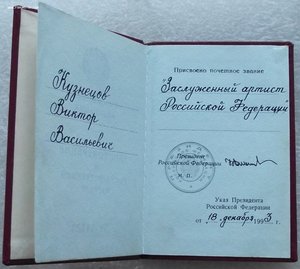 Кузнецов
Виктор
Васильевич
Присвоено почетное звание
"Заслуженный артист
Российской Федерации"
Президент
Российской Федерации
М.П.
Указ Президента
Российской Федерации
от "18" декабря 1993 г.